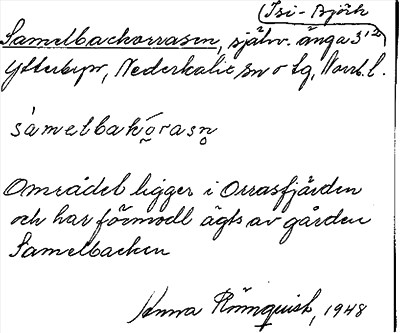 Isi-Björk
Samelbackorrasen, självv. änga 3¹²
Ytterbyn, Nederkalix sn o tg, Norrb. l.
sámelbakórasn
Området ligger i Orrasfjärden
och har förmodl ägts av gården
Samelbacken
Anna Rönnquist, 1948